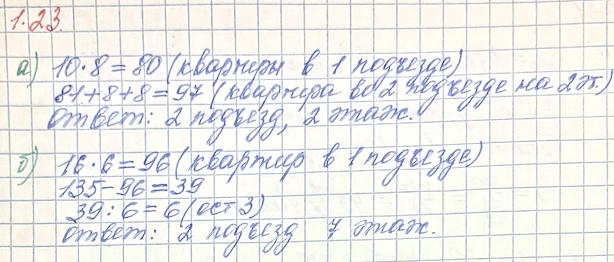 1.23.
а) 10·8=80 (квартиры в 1 подъезде)
81+8+8=97 (квартира во 2 подъезде на 2эт.)
ответ: 2 подъезд, 2 этаж.
б) 16·6=96 (квартир в 1 подъезде)
135-96=39
39:6=6 (ост 3)
ответ: 2 подъезд 7 этаж.